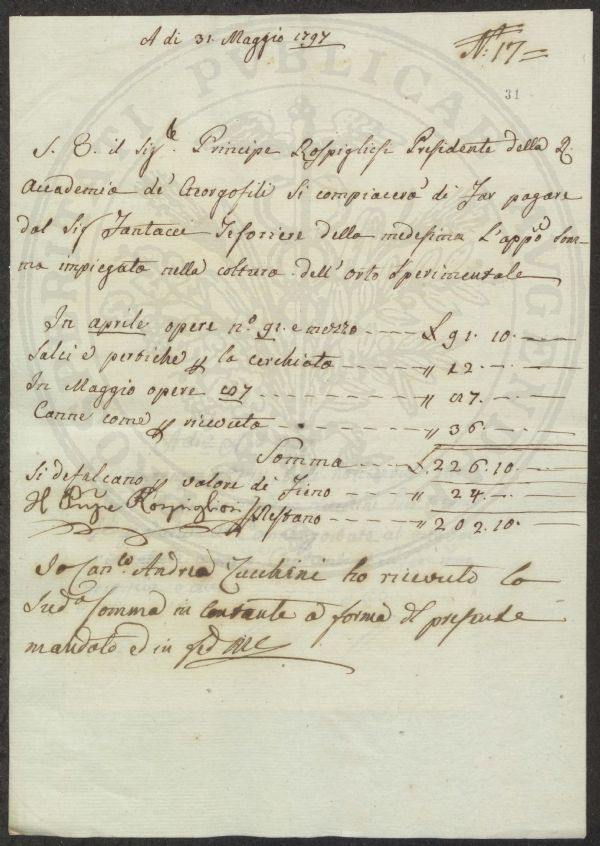 PROSPERITATI PUBLICAE AUGENDAE
A di 31. Maggio 1797
N: 17=
31
S. E. il Sigre. Principe Rospigliosi Presidente della R.
Accademia de' Georgofili si compiacerà di far pagare
dal Sigr Fantacci Tesoriere della medesima l'appo. Som-
ma impiegata nella coltura dell'orto Sperimentale
In aprile opere no. 91. e mezzo ---- £ 91. 10. —
Salci e pertiche p la cerchiata ---- " 12. —
In Maggio opere 87 ---- " 87. —
Canne come p ricevuta ---- " 36. —
Somma ---- £. 226. 10. —
Si defalcano p valore di Fieno ---- " 24. —
Il Prpe Rospigliosi Restano ---- " 202. 10. —
Io Canco. Andrea Zucchini ho ricevuto la
Suda. Somma in contante a forma del presente
mandato ed in fed